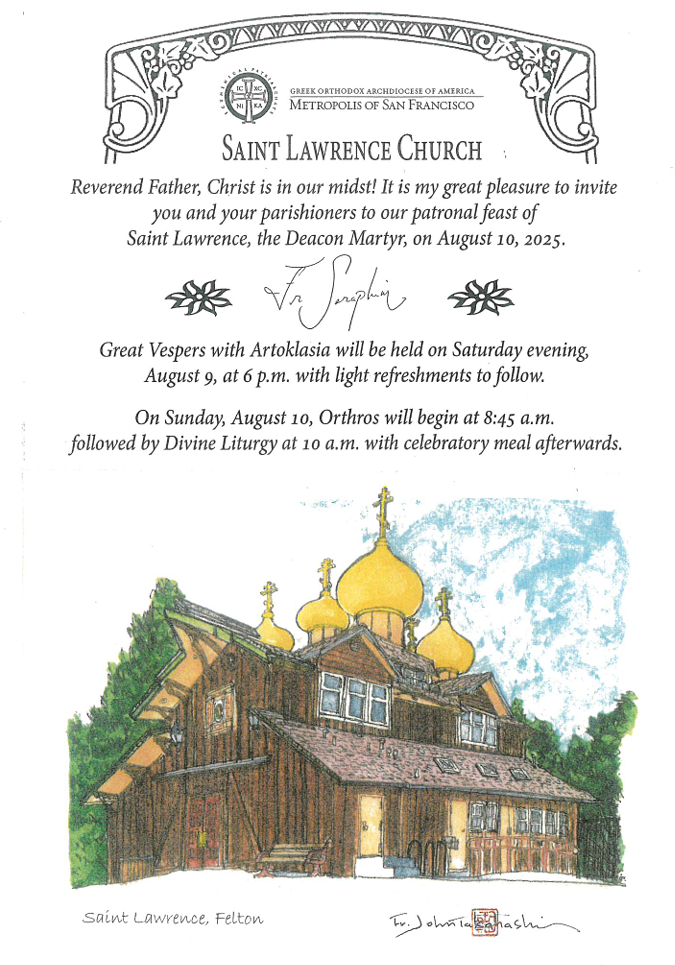 IC XC
NI KA
GREEK ORTHODOX ARCHDIOCESE OF AMERICA
METROPOLIS OF SAN FRANCISCO
SAINT LAWRENCE CHURCH
Reverend Father, Christ is in our midst! It is my great pleasure to invite
you and your parishioners to our patronal feast of
Saint Lawrence, the Deacon Martyr, on August 10, 2025.
Fr. Seraphim
Great Vespers with Artoklasia will be held on Saturday evening,
August 9, at 6 p.m. with light refreshments to follow.
On Sunday, August 10, Orthros will begin at 8:45 a.m.
followed by Divine Liturgy at 10 a.m. with celebratory meal afterwards.
Saint Lawrence, Felton
Fr. John Takahashi